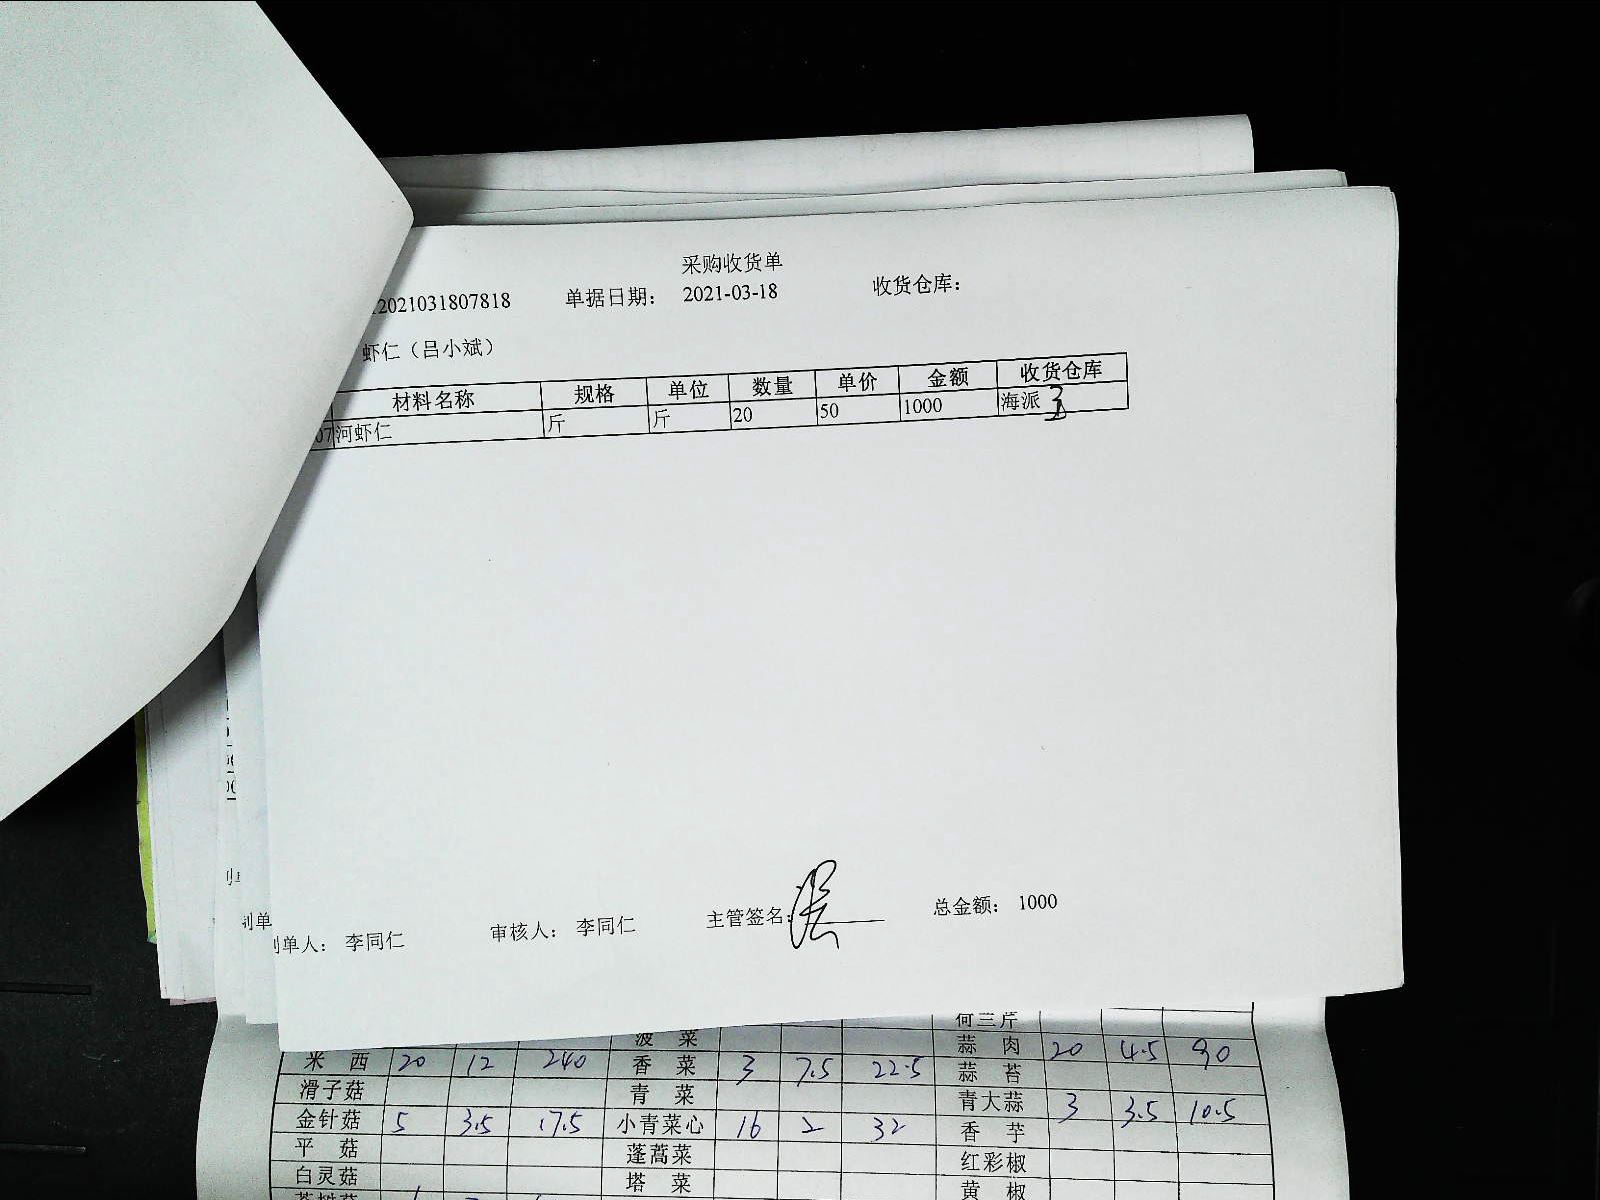 采购收货单
2021031807818 单据日期： 2021-03-18 收货仓库：
虾仁（吕小斌）
材料名称 规格 单位 数量 单价 金额 收货仓库
07 河虾仁 斤 斤 20 50 1000 海派
制单
制单人： 李同仁 审核人： 李同仁 主管签名： 总金额： 1000
菠 菜 荷兰芹
米 西 20 12 240 香 菜 3 7.5 22.5 蒜 肉 20 4.5 90
滑子菇 青 菜 蒜 苔
金针菇 5 3.5 17.5 小青菜心 16 2 32 青大蒜 3 3.5 10.5
平 菇 蓬蒿菜 香 芋
白灵菇 塔 菜 红彩椒
黄 椒